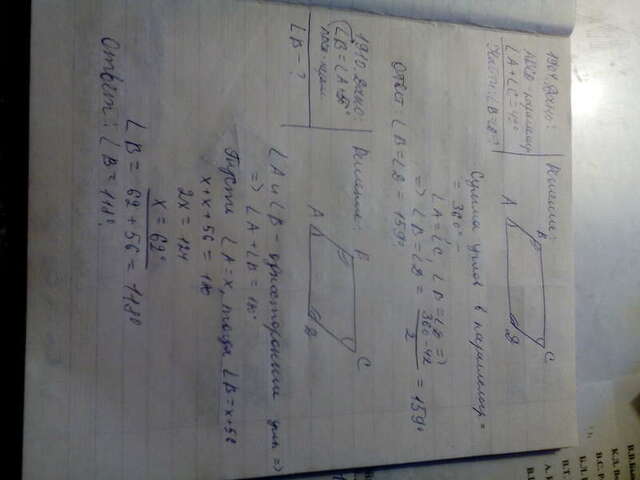 1904. Дано:
ABCD параллелогр
∠A + ∠C = 42°
Найти: ∠B = ∠D - ?
Решение:
B
C
A
D
Сумма углов в параллелогр =
= 360° =
∠A = ∠C, ∠B = ∠D =>
=> ∠B = ∠D = 360 - 42 / 2 = 159°
Ответ ∠B = ∠D = 159°
1910. Дано:
∠B = ∠A + 56°
∠B - ?
Решение:
B
C
A
D
∠A и ∠B - односторонние углы =>
=> ∠A + ∠B = 180°
Пусть ∠A = x, тогда ∠B = x + 56
x + x + 56 = 180
2x = 124
x = 62°
∠B = 62 + 56 = 118°
Ответ: ∠B = 118°